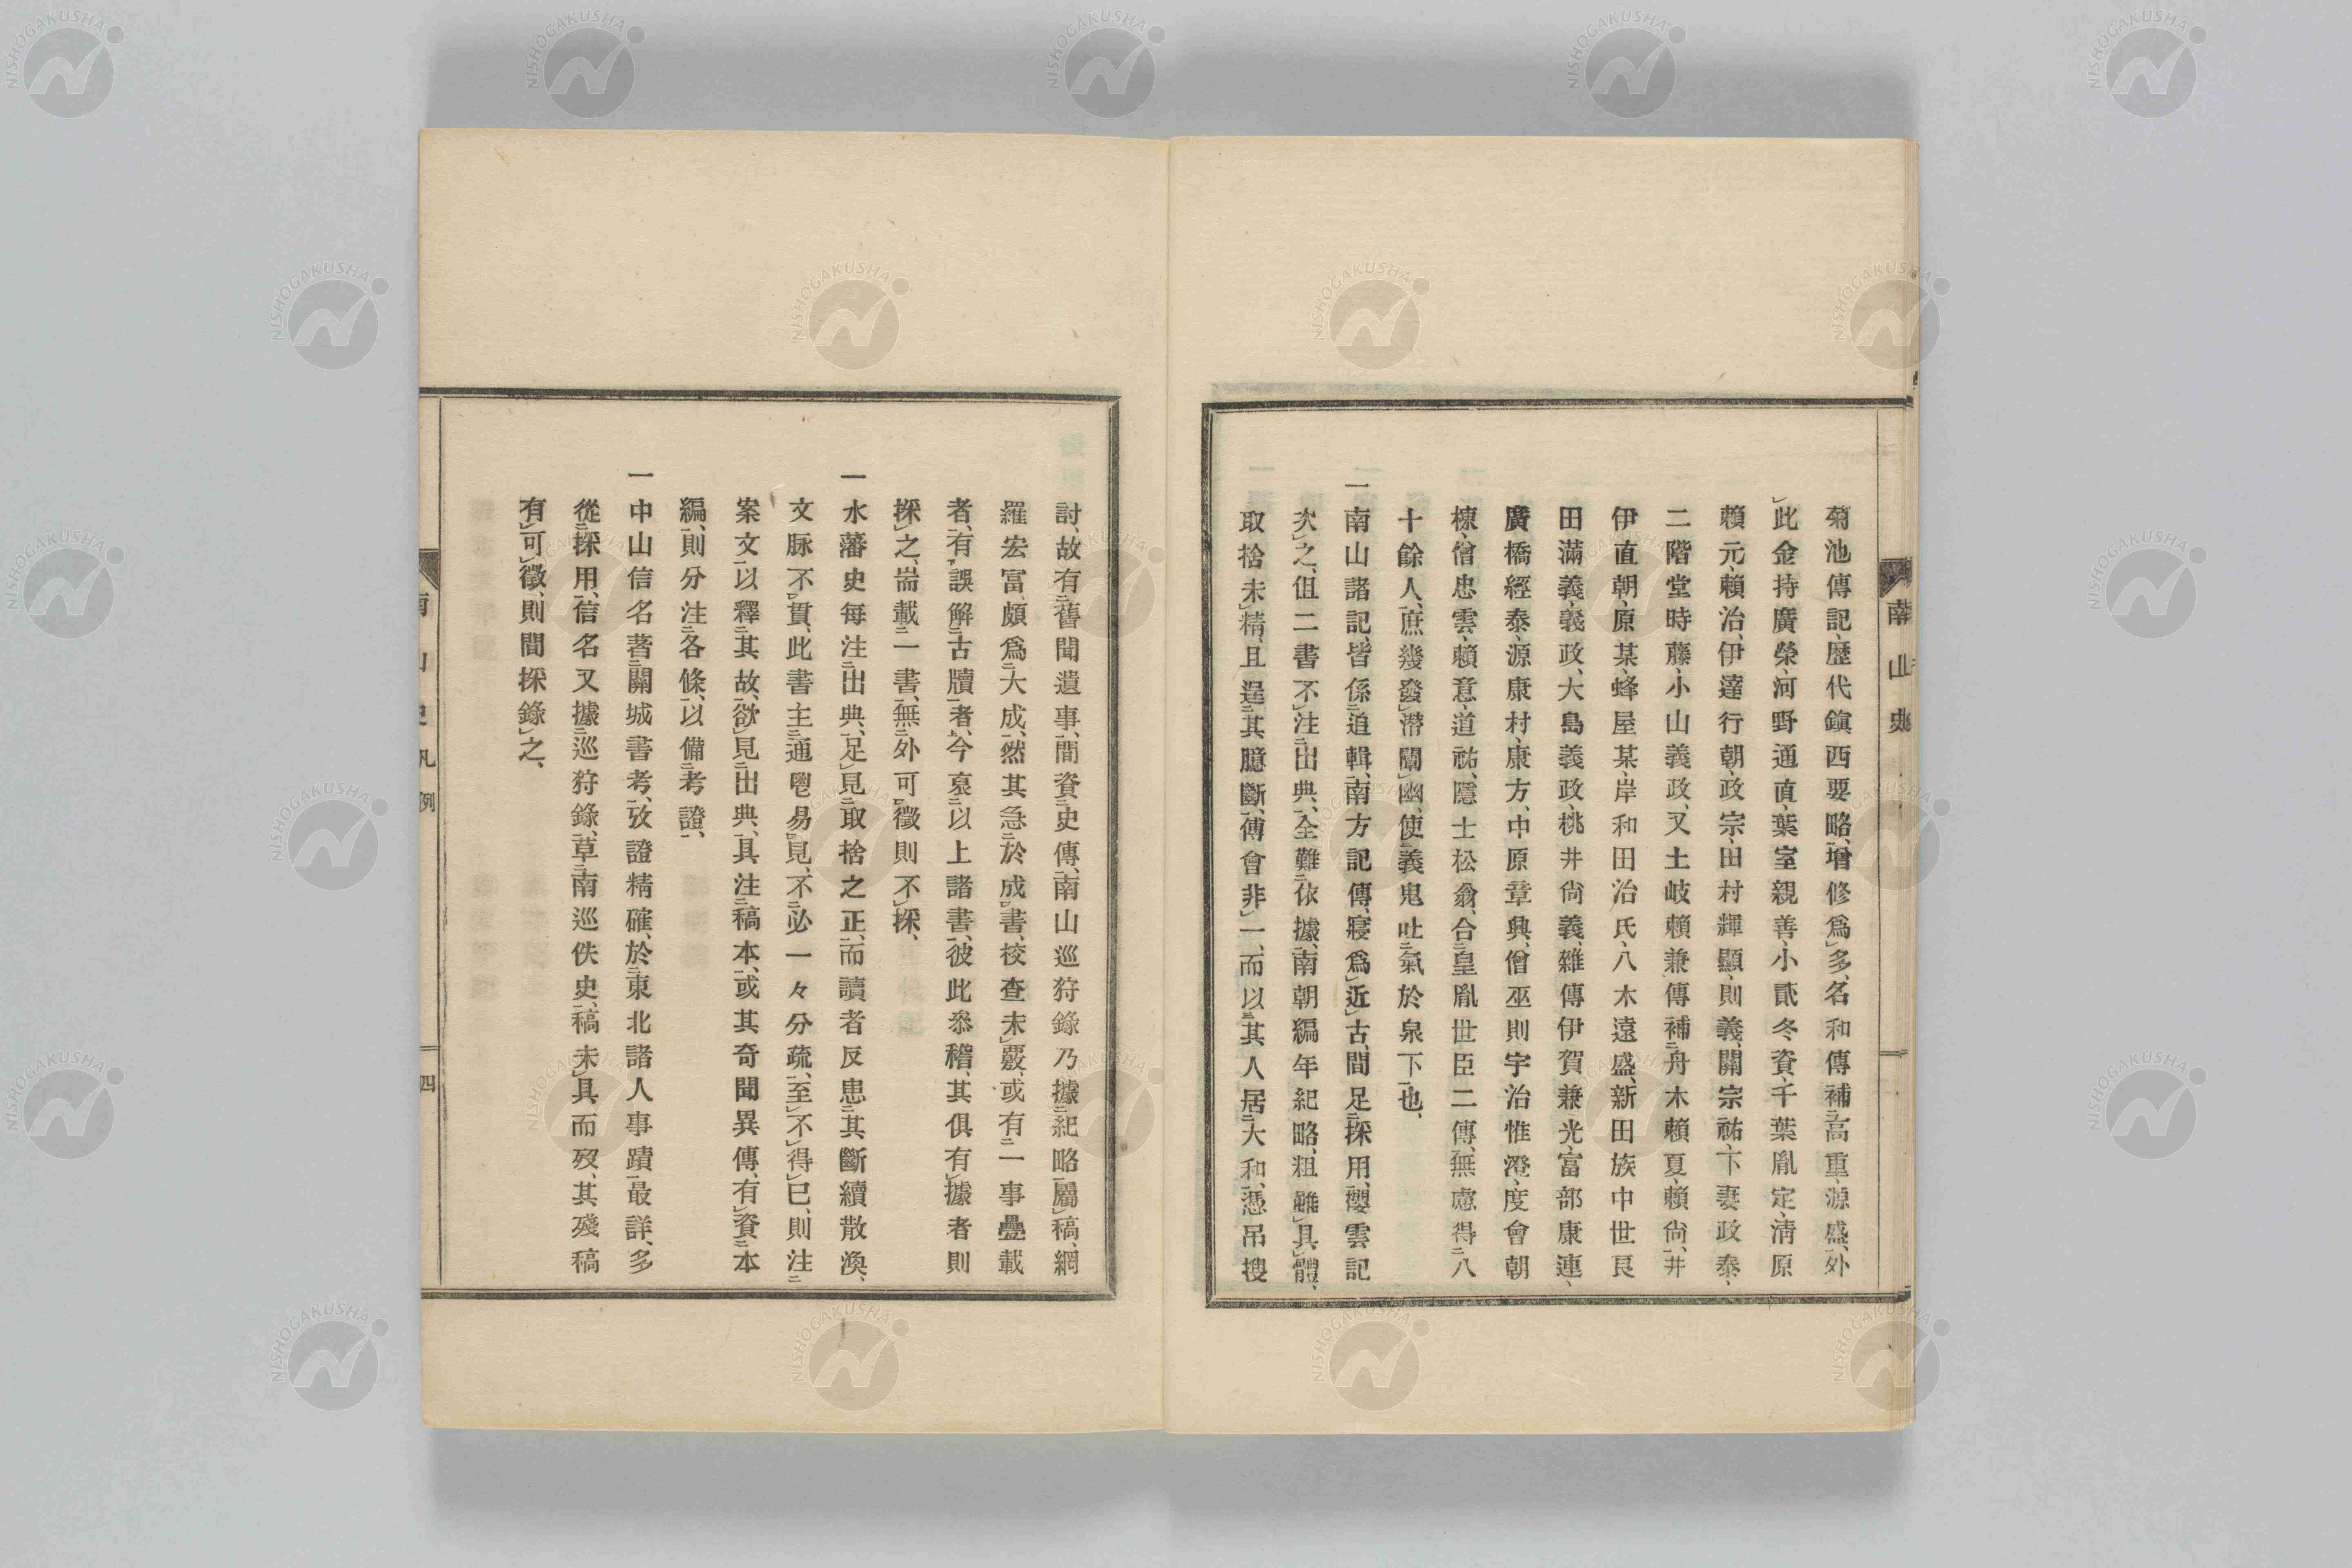 南山史
菊池傳記、歷代鎭西要略、增修爲多、名和傳補高重、源盛、外
此金持廣榮、河野通直、葉室親善、小貳冬資、千葉胤定、淸原
賴元、賴治、伊達行朝、政宗、田村輝顯、則義、關宗祐、下妻政泰、
二階堂時藤、小山義政、又土岐賴兼傳補舟木賴夏、賴尙、井
伊直朝、原某、蜂屋某、岸和田治氏、八木遠盛、新田族中世良
田滿義、義政、大島義政、桃井尙義、雜傳伊賀兼光、富部康連、
廣橋經泰、源康村、康方、中原章興、僧巫則宇治惟澄、度會朝
棟、僧忠雲、賴意、道祐、隱士松翁、合皇胤世臣二傳、無慮得八
十餘人、庶幾發潛闡幽、使義鬼吐氣於泉下也、
一南山諸記、皆係追輯、南方記傳、寢爲近古、間足採用、櫻雲記
次之、伹二書不注出典、全難依據、南朝編年紀略、粗雖具體、
取捨未精、且逞其臆斷、傅會非一、而以其人居大和、憑吊搜
討、故有舊聞遺事、間資史傳、南山巡狩錄乃據紀略屬稿、網
羅宏富、頗爲大成、然其急於成書、挍查未覈、或有一事疊載
者、有誤解古牘者、今裒以上諸書、彼此叅稽、其俱有據者則
採之、耑載一書、無外可徵則不採、
一水藩史每注出典、足見取捨之正、而讀者反患其斷續散渙、
文脉不貫、此書主通鬯易見、不必一々分疏、至不得已、則注
案文以釋其故、欲見出典、具注稿本、或其奇聞異傳、有資本
編、則分注各條、以備考證、
一中山信名著關城書考、攷證精確、於東北諸人事蹟最詳、多
從採用、信名又據巡狩錄、草南巡佚史、稿未具而歿、其殘稿
有可徵、則間採錄之、
南山史凡例
四